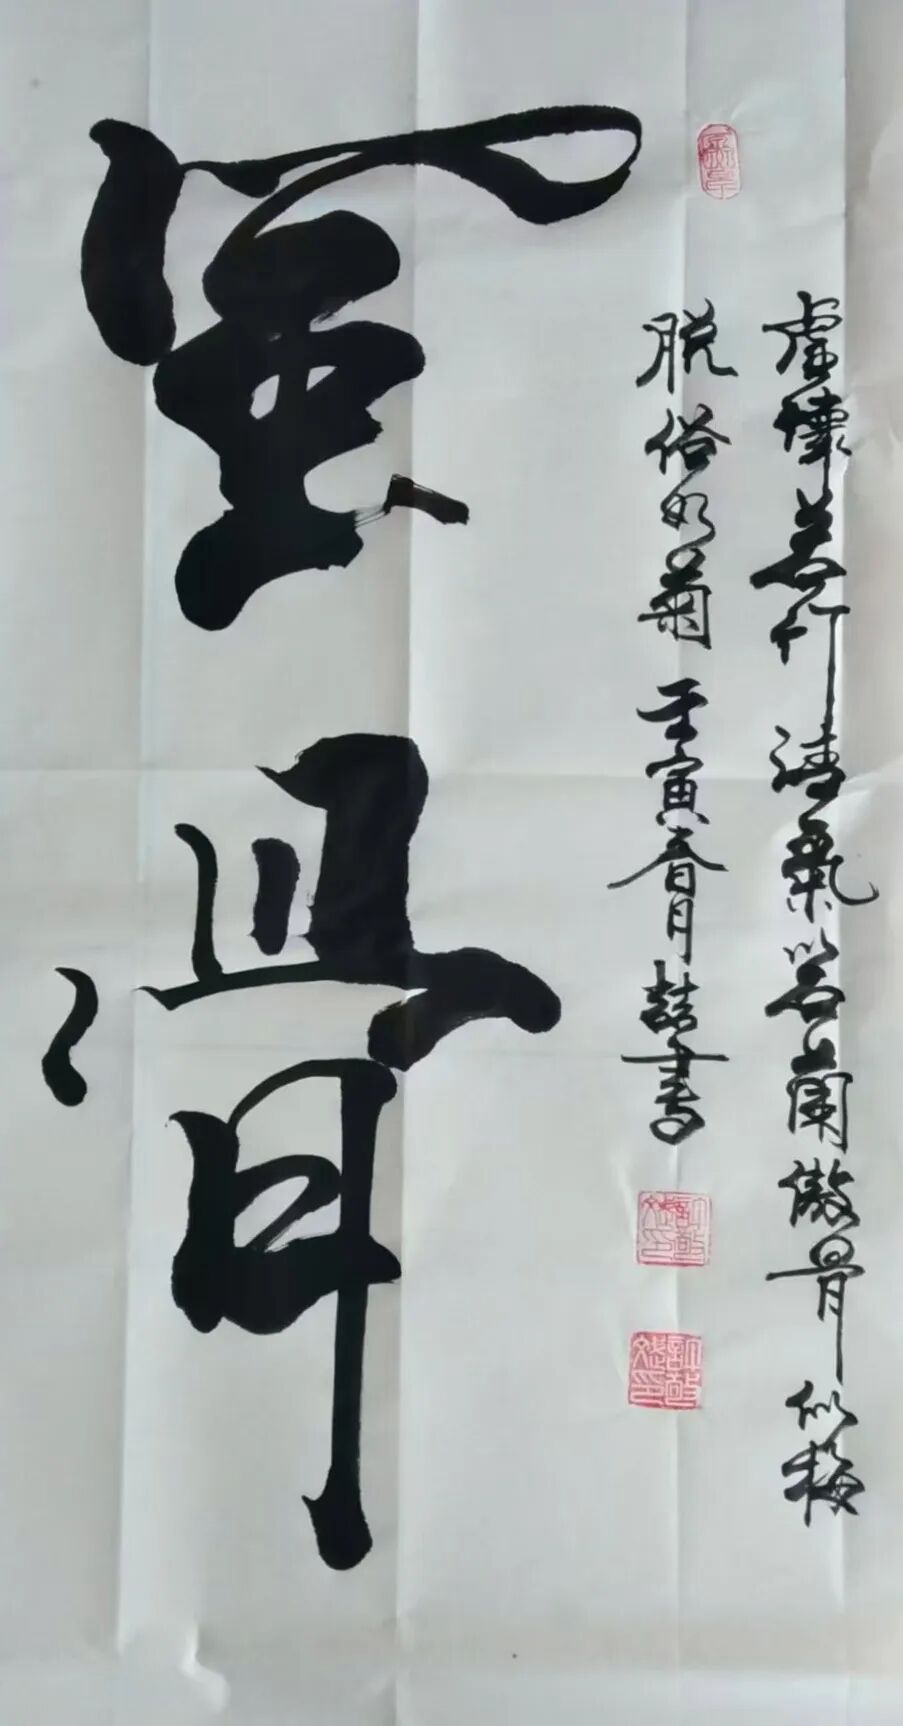 虚懷若竹清氣若蘭傲骨似梅
脱俗如菊 壬寅春月喆書
骨